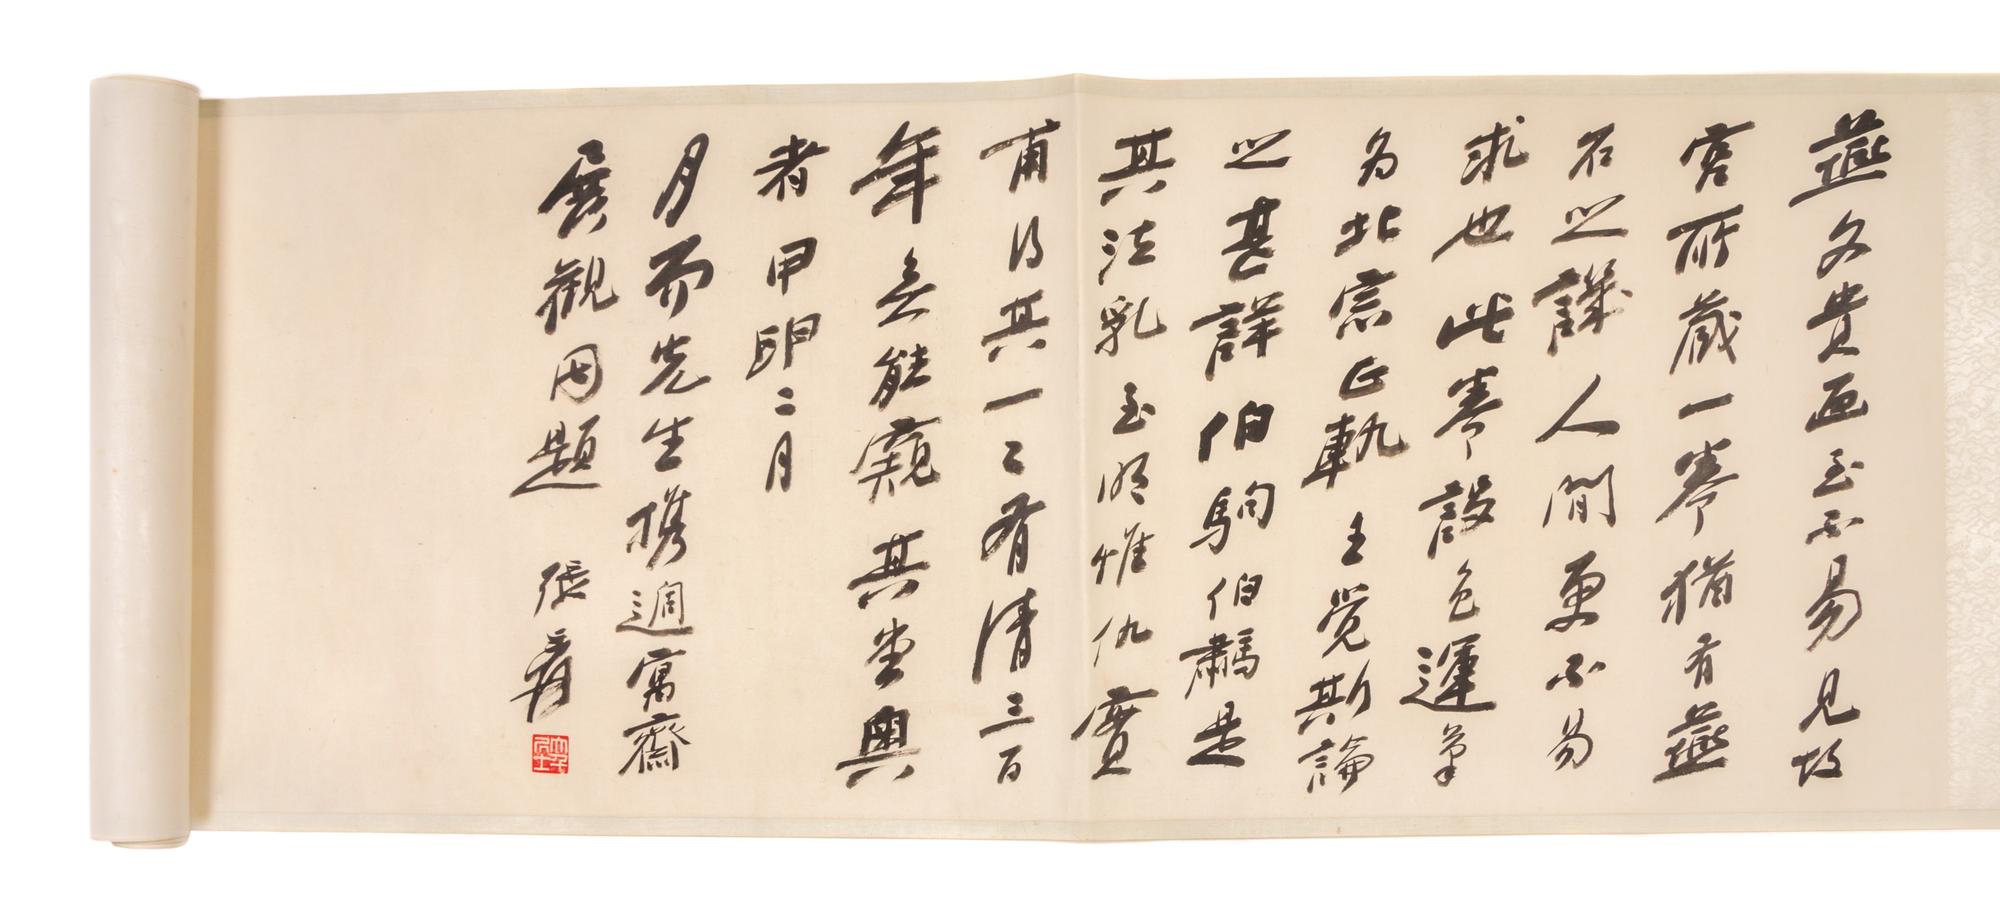 燕文貴画至不易見故
宮所藏一卷猶有燕
石之譏人間更不易
求也此卷設色運筆
為北宗正軌王覺斯論
之甚詳伯駒伯驌是
其法乳至明惟仇實
甫得其一二有清三百
年無能窺其堂奧
者甲申二月
月而先生攜過寓齋
展觀因題 張爰